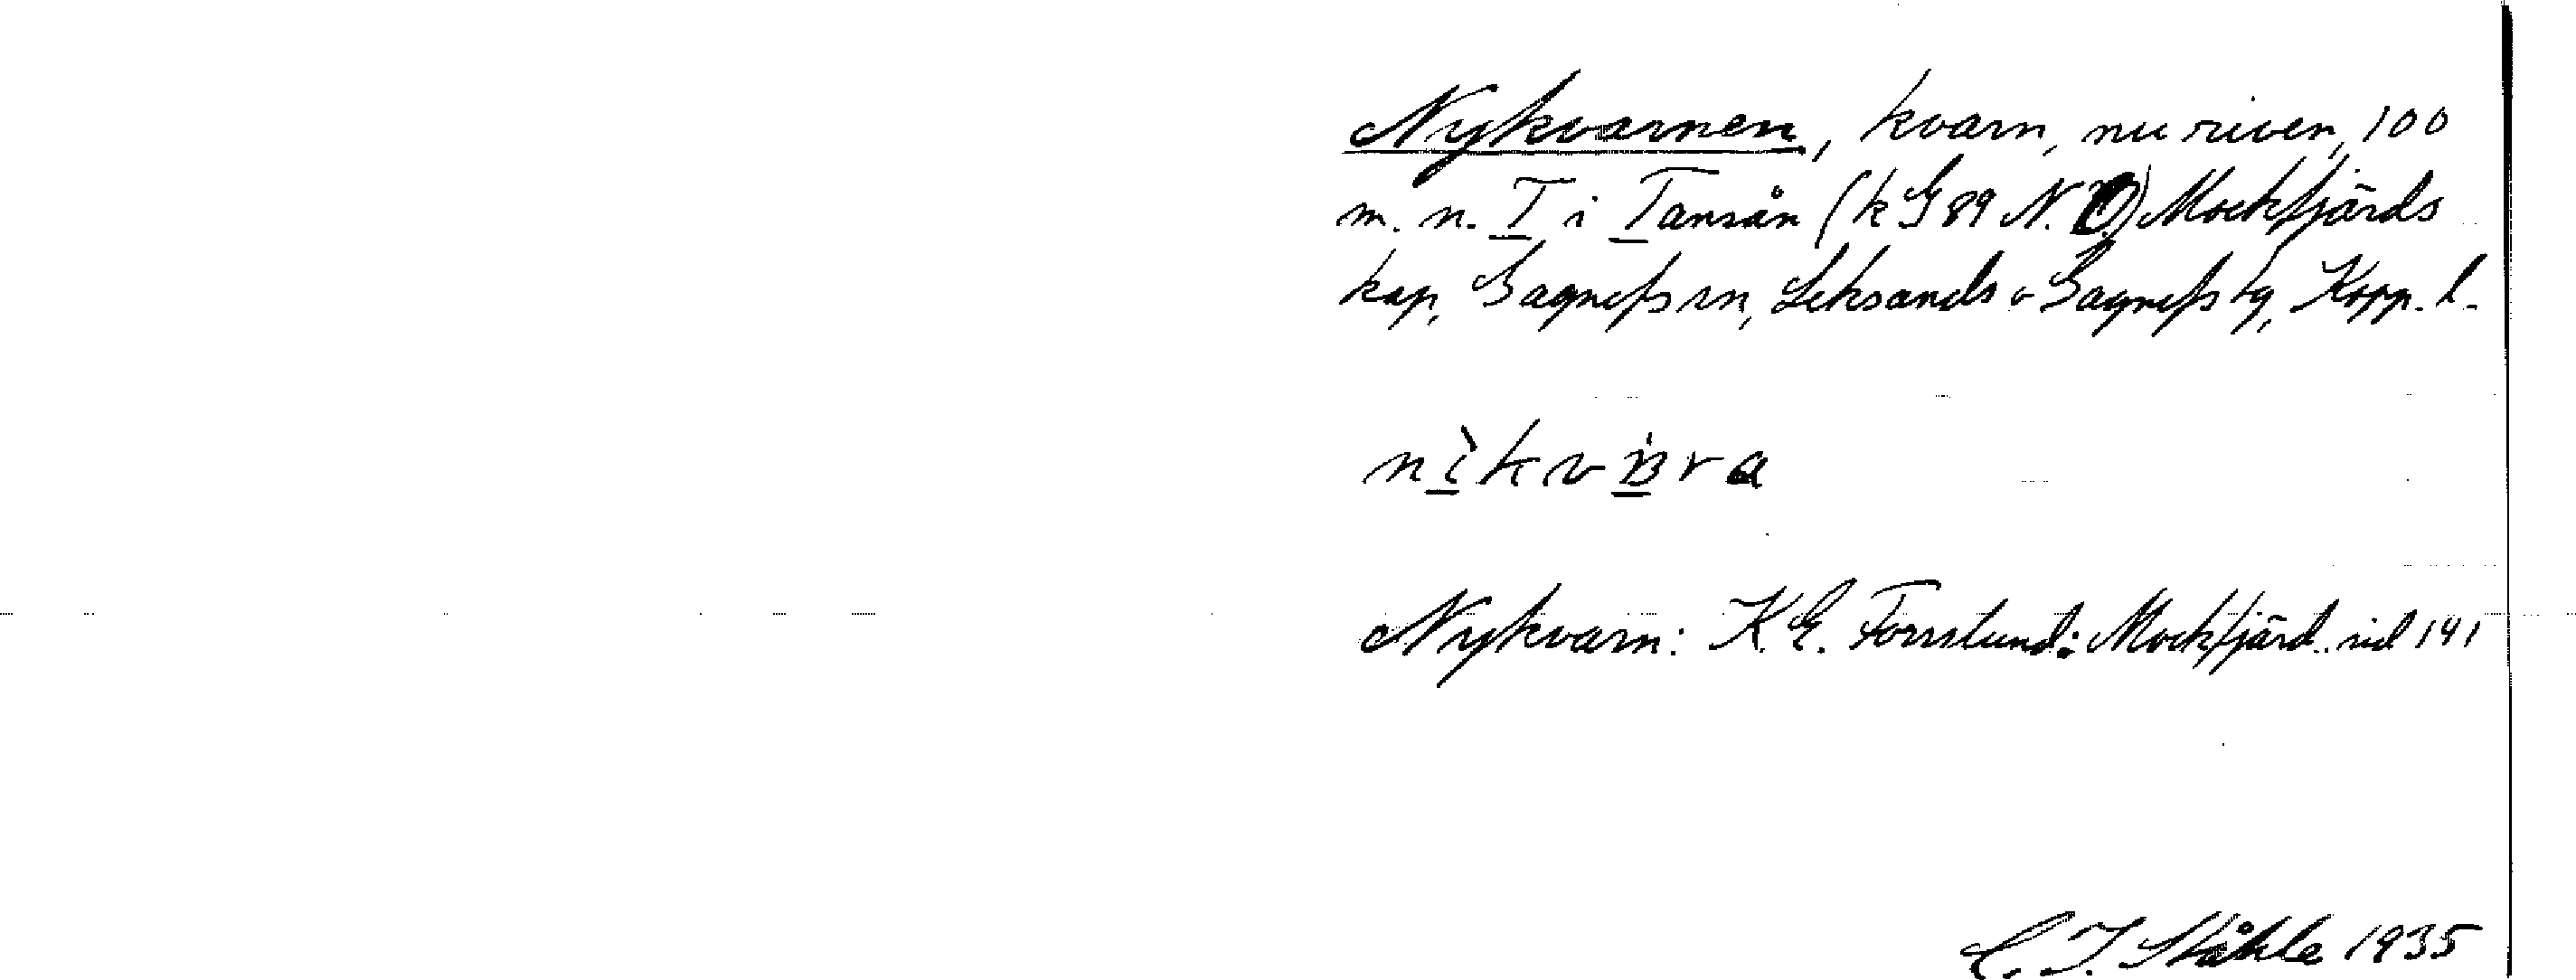 Nykvarnen, kvarn, nu riven, 100
m. n. T i Tansån (k G 89 N.O) Mockfjärds
kap, Gagnefs sn, Leksands o Gagnefs tg, Kopp. l.
Nykvarn: K. E. Forsslund: Mockfjärd. sid 141
C. I. Ståhle 1935